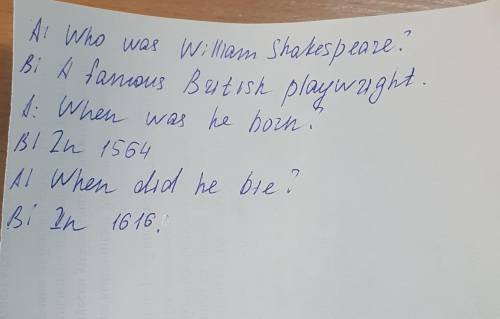 A: Who was William Shakespeare?
B: A famous British playwright.
A: When was he born?
B: In 1564
A: When did he bie?
B: In 1616.